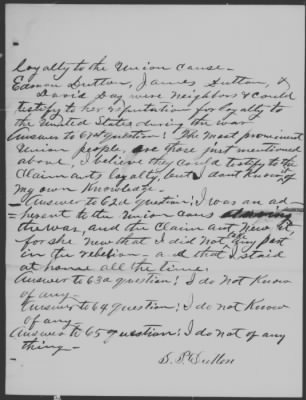 loyalty to the Union cause-
Edman Dutton, James Dutton, &
David Day were neighbors & could
testify to her reputation for loyalty to
the United States during the war
Answer to 61st question: The most prominent
Union people, are those just mentioned
above, I believe they could testify to the
Claimants loyalty, but I dont Know it of
my own Knowledge-
Answer to 62d question: I was an ad-
herent to the Union caus
the war, and the Claimant New it,
for she new that I did not take any part
in the rebelion- and that I staid
at home all the time.
Answer to 63d question: I do not Know
of any-
Answer to 64 question: I do not Know
of any-
Answer to 65 question: I do not of any
thing-
S. P. Dutton